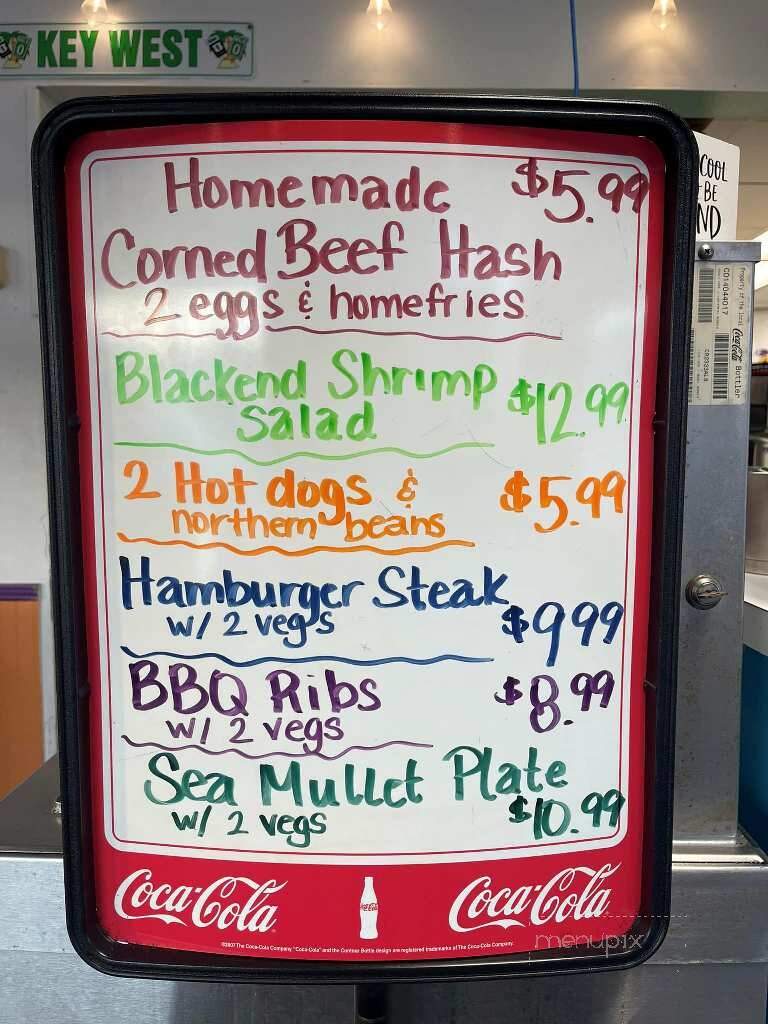 KEY WEST
COOL
BE
ND
Homemade $5.99
Corned Beef Hash
2 eggs & homefries
Blackend Shrimp $12.99
Salad
2 Hot dogs & $5.99
northern beans
Hamburger Steak
w/ 2 vegs $9.99
BBQ Ribs $8.99
w/ 2 vegs
Sea Mullet Plate
w/ 2 vegs $10.99
Coca-Cola Coca-Cola
©2007 The Coca-Cola Company. "Coca-Cola" and the Contour Bottle design are registered trademarks of The Coca-Cola Company.
menupix
Property of the local Coca-Cola Bottler
CD14044017